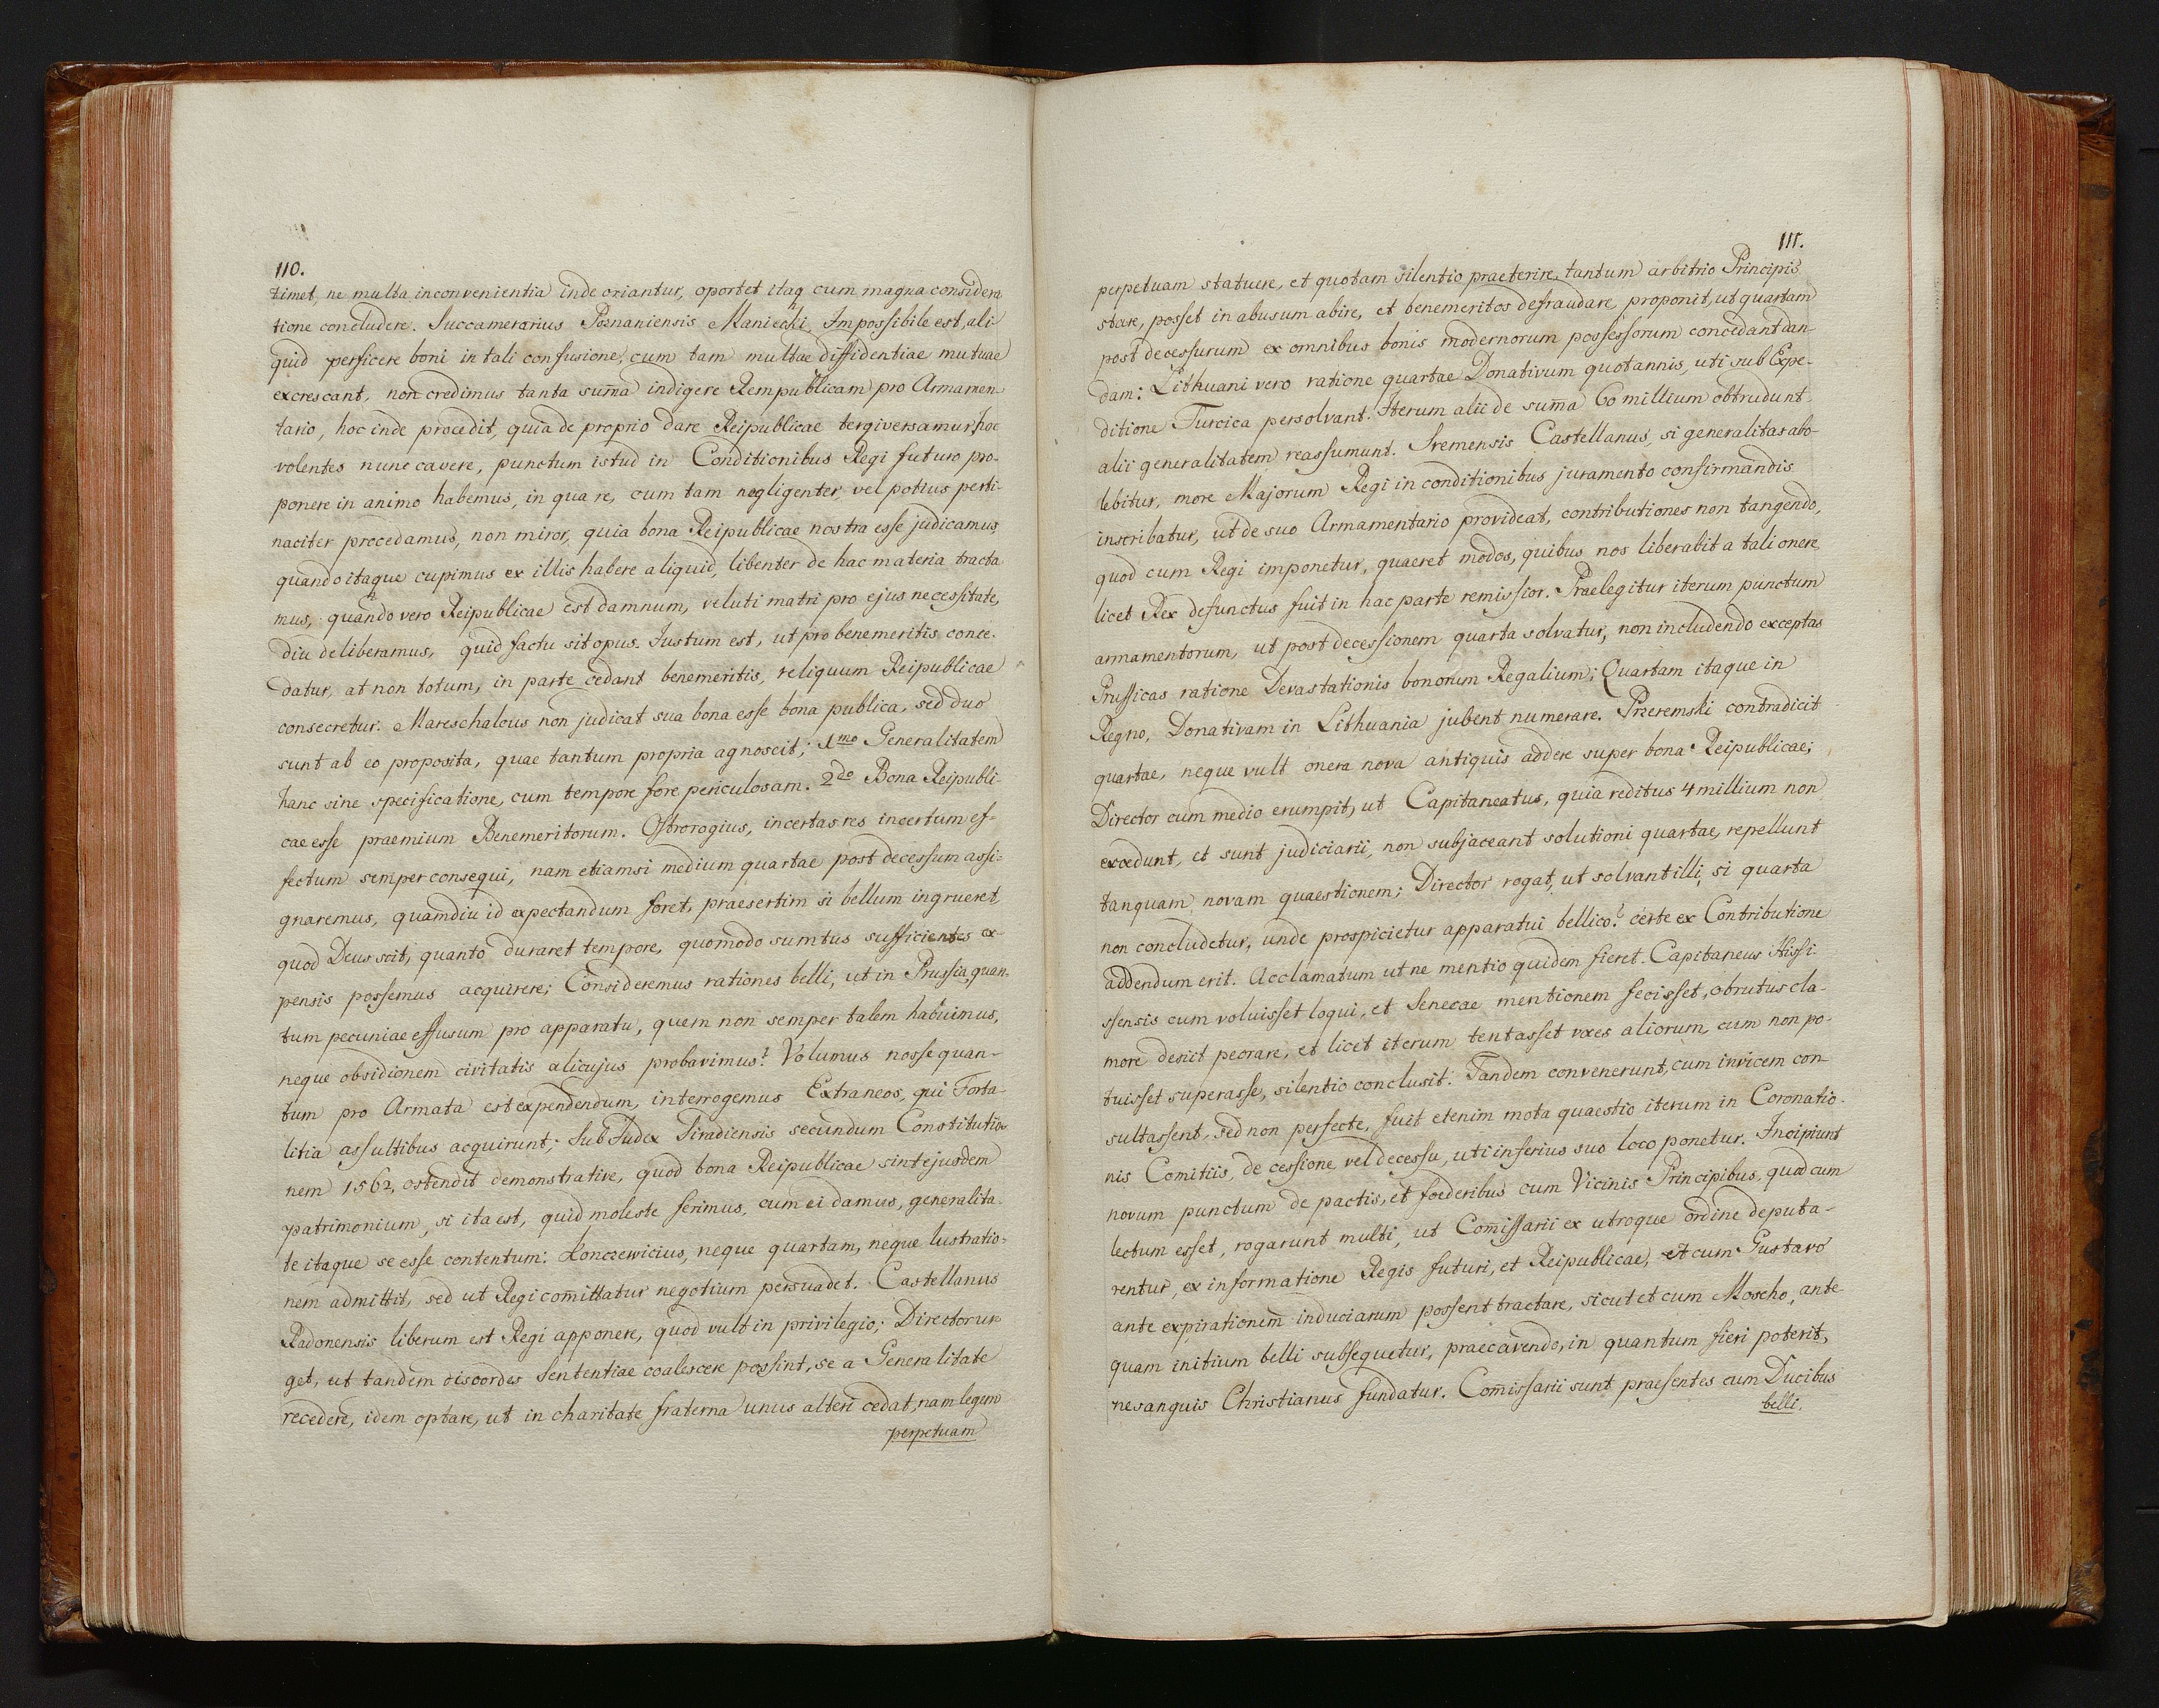 110.
timet, ne multa inconvenientia inde oriantur, oportet itaq cum magna considera
tione concludere. Succamerarius Posnaniensis Maniecki, Impossibile est, ali
quid perficere boni in tali confusione, cum tam multae diffidentiae mutuae
excrescant, non credimus tanta sum̄a indigere Rempublicam pro Armamen
tario, hoc inde procedit, quia de proprio dare Reipublicae tergiversamur, hoc
volentes nunc cavere, punctum istud in Conditionibus Regi futuro pro-
ponere in animo habemus, in qua re, cum tam negligenter, vel potius perti-
naciter procedamus, non miror, quia bona Reipublicae nostra esse judicamus,
quando itaque cupimus ex illis habere aliquid, libenter de hac materia tracta
mus, quando vero Reipublicae est damnum, veluti matri pro ejus necessitate,
diu deliberamus, quid factu sit opus. Iustum est, ut pro benemeritis conce-
datur, at non totum, in parte cedant benemeritis, reliquum Reipublicae
consecretur. Mareschalcus non judicat sua bona esse bona publica, sed duo
sunt ab eo proposita, quae tantum propria agnoscit; 1mo Generalitatem
hanc sine specificatione, cum tempore fore periculosam. 2do Bona Reipubli-
cae esse praemium Benemeritorum. Ostrorogius, incertas res incertum ef-
fectum semper consequi, nam etiamsi medium quartae post decessum assi-
gnaremus, quamdiu id expectandum foret, praesertim si bellum ingrueret
quod Deus scit, quanto duraret tempore, quomodo sumtus sufficientes ex-
pensis possemus acquirere; Consideremus rationes belli, ut in Prussia, quan-
tum pecuniae effusum pro apparatu, quem non semper talem habuimus,
neque obsidionem civitatis alicujus probavimus? Volumus nosse quan-
tum pro Armata est expendendum, interrogemus Extraneos, qui Forta-
litia assultibus acquirunt; Sub Judex Siradiensis secundum Constitutio-
nem 1562, ostendit demonstrative, quod bona Reipublicae sint ejusdem
patrimonium, si ita est, quid moleste ferimus, cum ei damus, generalita-
te itaque se esse contentum: Lonczewicius, neque quartam, neque lustratio-
nem admittit, sed ut Regi com̄ittatur negotium persuadet. Castellanus
Radonensis liberum est Regi apponere, quod vult in privilegio; Director ur-
get, ut tandem discordes Sententiae coalescere possint, se a Generalitate
recedere, idem optare, ut in charitate fraterna unus alteri cedat, nam legem
perpetuam
111.
perpetuam statuere, et quotam silentio praeterire, tantum arbitrio Principis
stare, posset in abusum abire, et benemeritos defraudare, proponit, ut quartam
post decessurum ex omnibus bonis modernorum possessorum concedant dan-
dam: Lithuani vero ratione quartae Donativum quotannis, uti sub Expe-
ditione Turcica persolvant. Iterum alii de sum̄a 60 millium obtrudunt
alii generalitatem reassumunt. Sremensis Castellanus, si generalitas abo-
lebitur, more Majorum Regi in conditionibus juramento confirmandis
inscribatur, ut de suo Armamentario provideat, contributiones non tangendo,
quod cum Regi imponetur, quaeret modos, quibus nos liberabit a tali onere
licet Rex defunctus fuit in hac parte remissior. Praelegitur iterum punctum
armamentorum, ut post decessionem quarta solvatur, non includendo exceptas
Prussicas ratione Devastationis bonorum Regalium; Quartam itaque in
Regno, Donativam in Lithuania jubent numerare. Przeremski contradicit
quartae, neque vult onera nova antiquis addere super bona Reipublicae;
Director cum medio erumpit, ut Capitaneatus, quia reditus 4 millium non
excedunt, et sunt judiciarii, non subjaceant solutioni quartae, repellunt
tanquam novam quaestionem; Director rogat, ut solvant illi, si quarta
non concludetur, unde prospicietur apparatui bellico? certe ex Contributione
addendum erit. Acclamatum ut ne mentio quidem fieret. Capitaneus Hissi-
ssensis cum voluisset loqui, et Senecae mentionem fecisset, obrutus cla-
more desiit peorare, et licet iterum tentasset voces aliorum, cum non po-
tuisset superasse, silentio conclusit. Tandem convenerunt, cum invicem con-
sultassent, sed non perfecte, fuit etenim mota quaestio iterum in Coronatio-
nis Comitiis, de cessione vel decessu, uti inferius suo loco ponetur. Incipiunt
novum punctum de pactis, et foederibus cum Vicinis Principibus, quod cum
lectum esset, rogarunt multi, ut Com̄issarii ex utroque ordine deputa-
rentur, ex informatione Regis futuri, et Reipublicae, et cum Gustavo
ante expirationem induciarum possent tractare, sicut et cum Moscho, ante-
quam initium belli subsequetur, praecavendo, in quantum fieri poterit,
ne sanguis Christianus fundatur. Com̄issarii sunt praesentes cum Ducibus
belli.